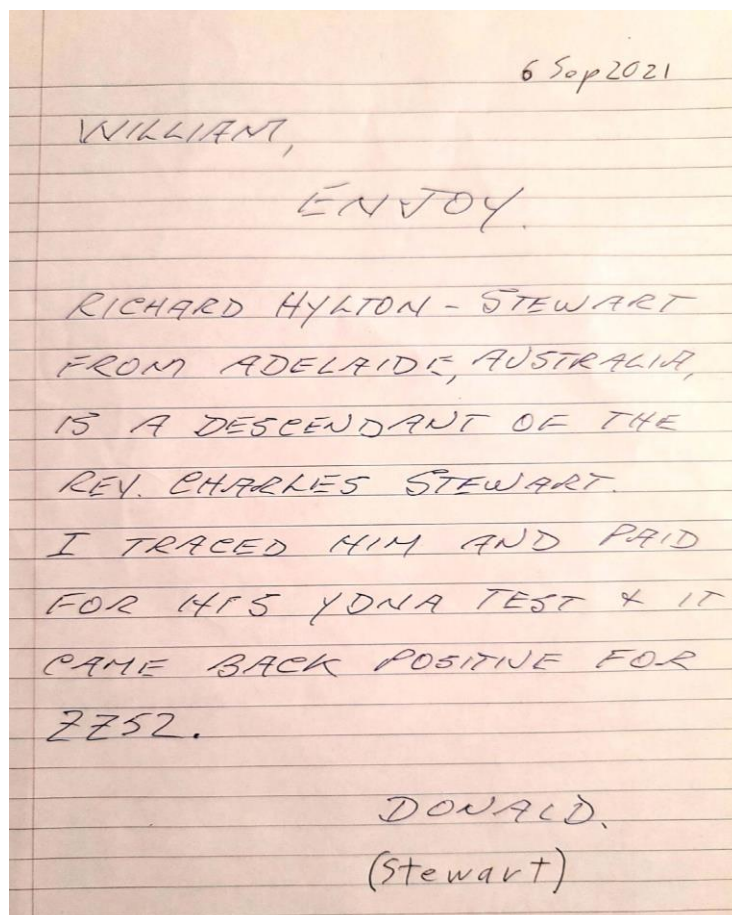 6 Sep 2021
WILLIAM,
ENJOY.
RICHARD HYLTON - STEWART
FROM ADELAIDE, AUSTRALIA,
IS A DESCENDANT OF THE
REV. CHARLES STEWART.
I TRACED HIM AND PAID
FOR HIS YDNA TEST & IT
CAME BACK POSITIVE FOR
ZZ52.
DONALD.
(Stewart)